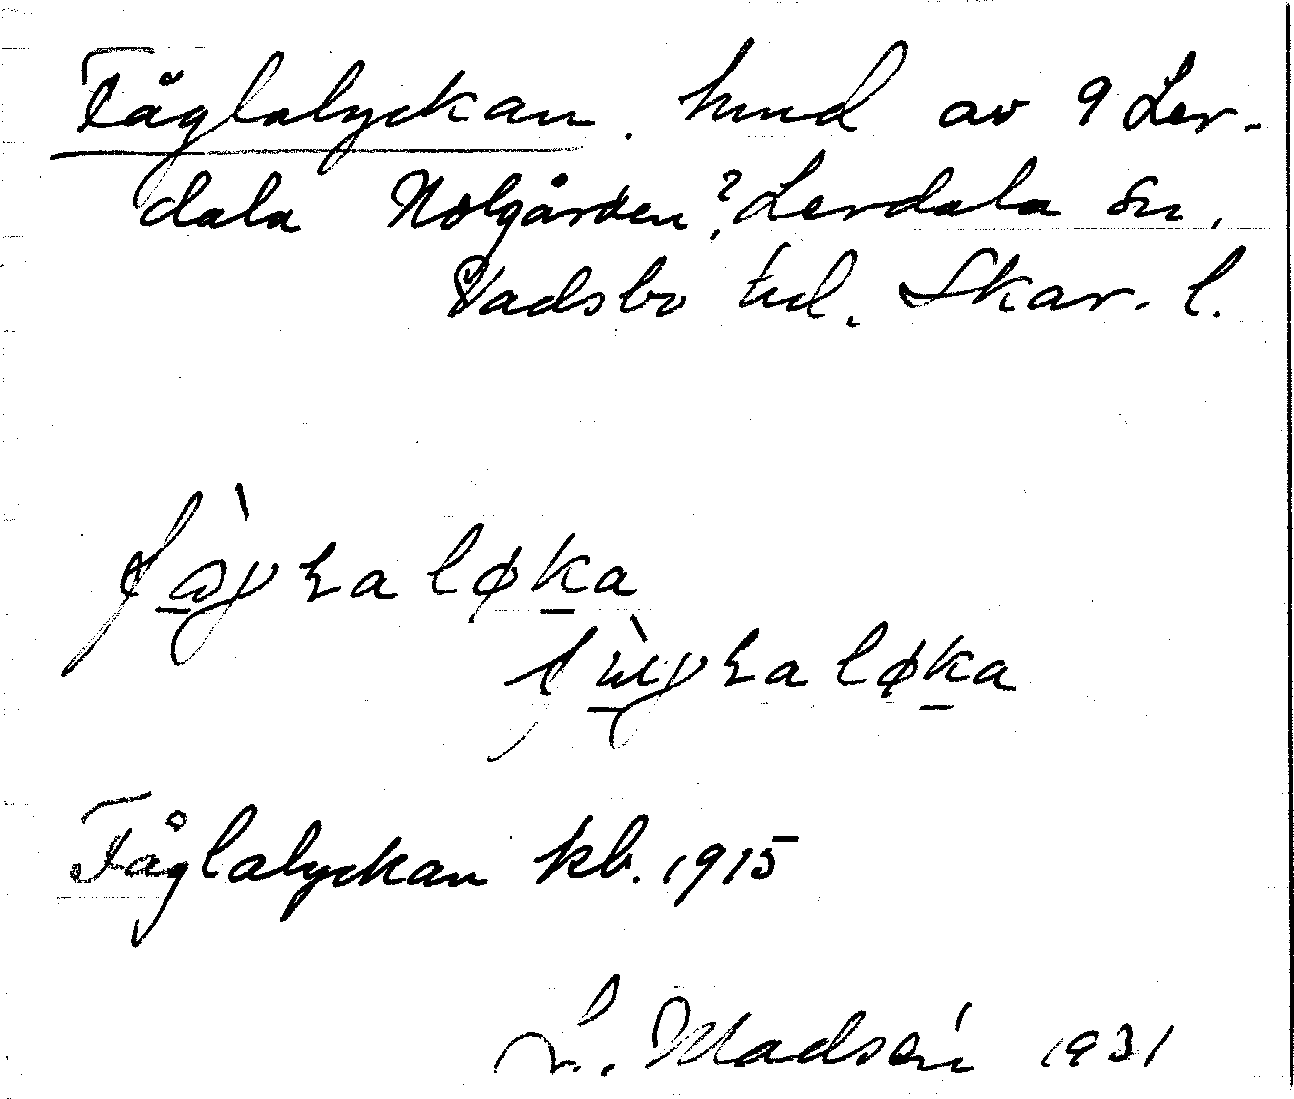 Fåglalyckan. hmd av 9 Ler-
dala Nolgården, Lerdala sn,
Vadsbo hd. Skar. l.
Fåglalyckan kb. 1915
L. Madsén 1931